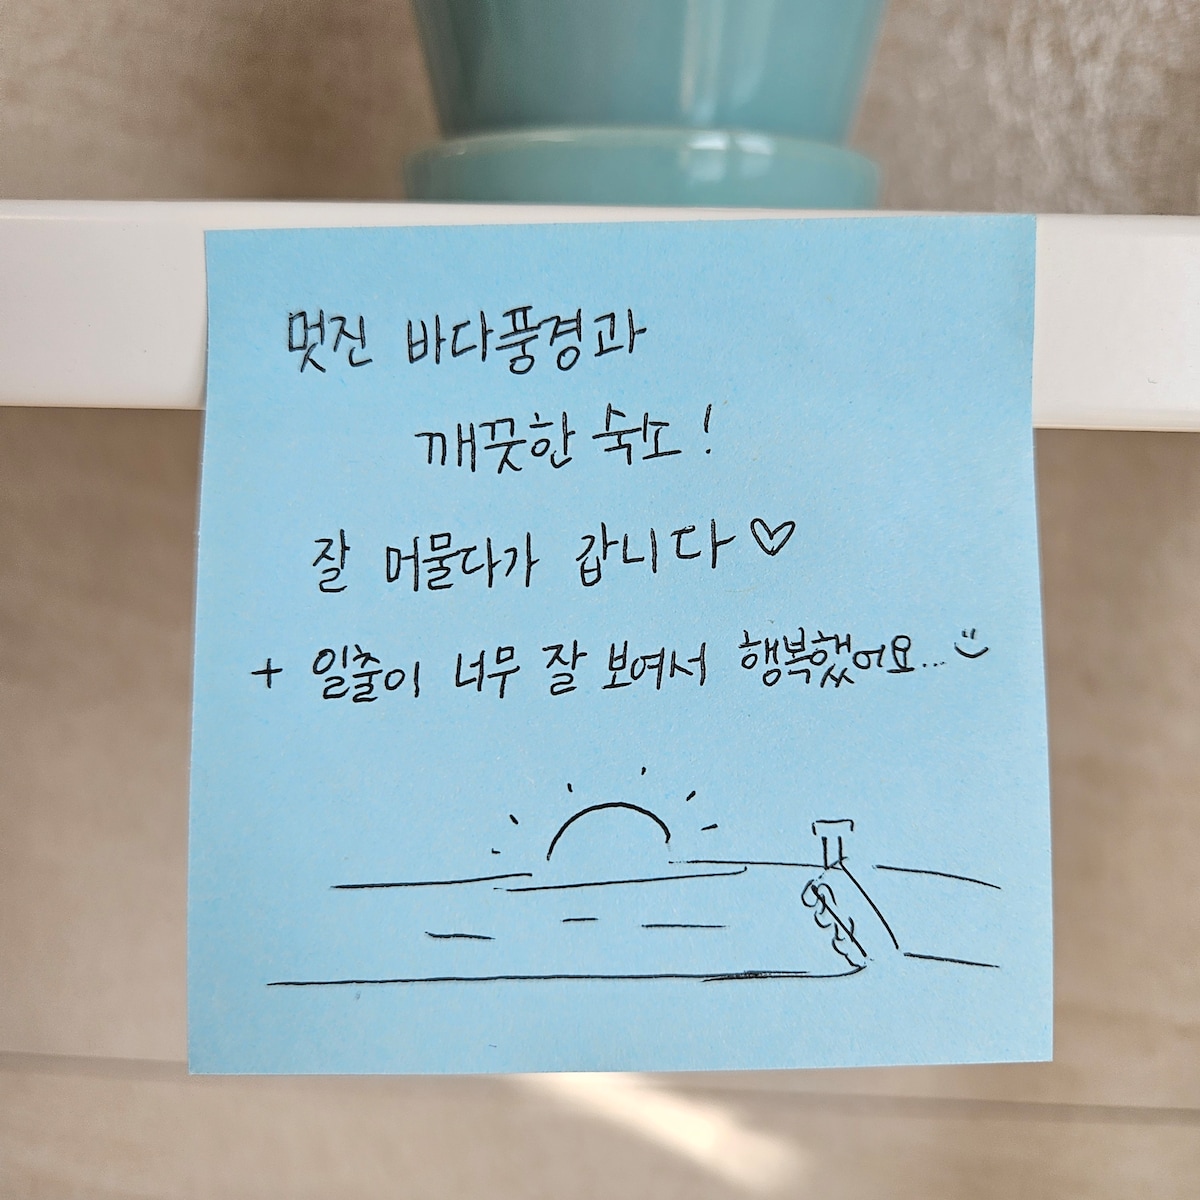 멋진 바다풍경과
깨끗한 숙소!
잘 머물다가 갑니다♡
+ 일출이 너무 잘 보여서 행복했어요...